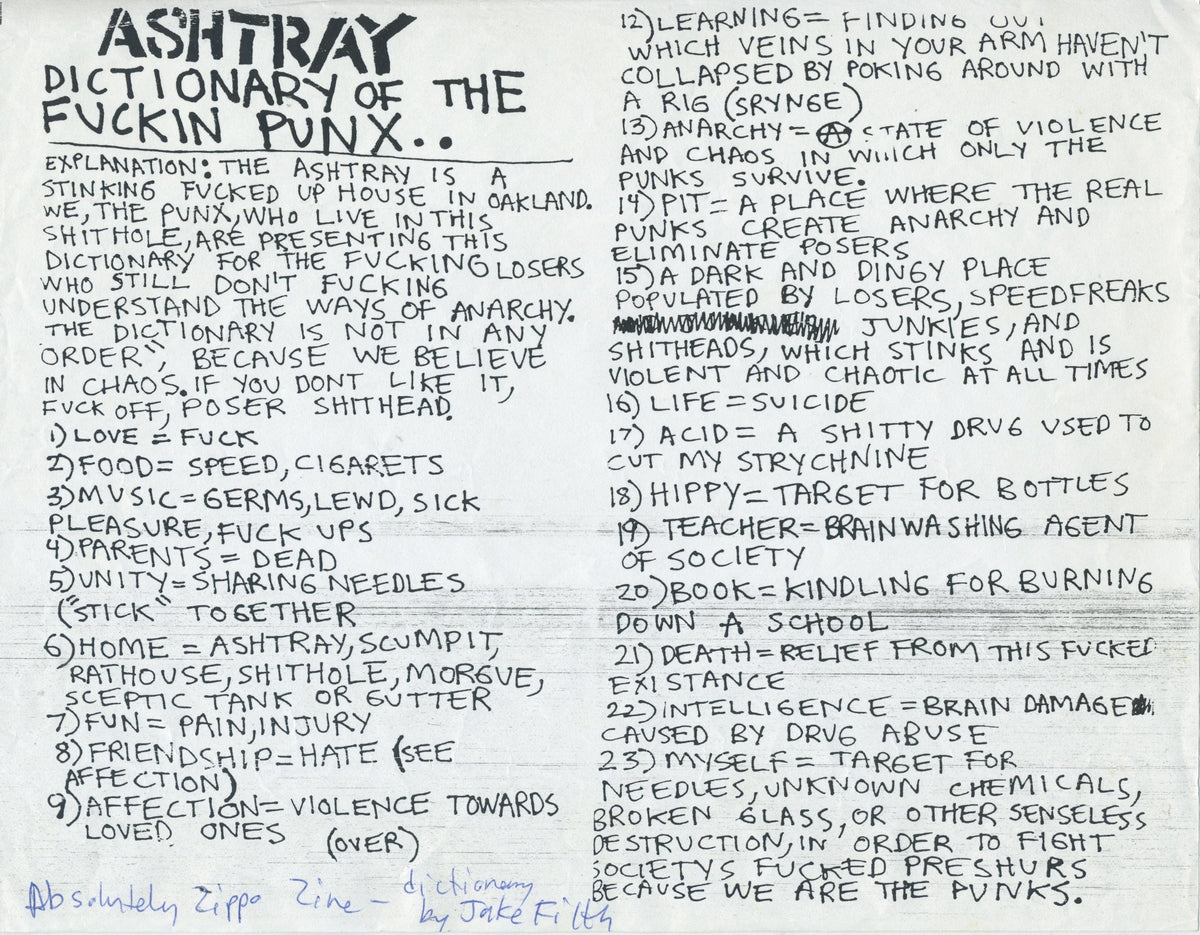 ASHTRAY
DICTIONARY OF THE
FUCKIN PUNX..
EXPLANATION: THE ASHTRAY IS A
STINKING FUCKED UP HOUSE IN OAKLAND.
WE, THE PUNX, WHO LIVE IN THIS
SHITHOLE, ARE PRESENTING THIS
DICTIONARY FOR THE FUCKING LOSERS
WHO STILL DON'T FUCKING
UNDERSTAND THE WAYS OF ANARCHY.
THE DICTIONARY IS NOT IN ANY
ORDER", BECAUSE WE BELIEVE
IN CHAOS. IF YOU DONT LIKE IT,
FUCK OFF, POSER SHITHEAD.
1) LOVE = FUCK
2) FOOD = SPEED, CIGARETS
3) MUSIC = GERMS, LEWD, SICK
PLEASURE, FUCK UPS
4) PARENTS = DEAD
5) UNITY = SHARING NEEDLES
("STICK" TOGETHER
6) HOME = ASHTRAY, SCUMPIT,
RATHOUSE, SHITHOLE, MORGUE,
SCEPTIC TANK OR GUTTER
7) FUN = PAIN, INJURY
8) FRIENDSHIP = HATE (SEE
AFFECTION)
9) AFFECTION = VIOLENCE TOWARDS
LOVED ONES (OVER)
Absolutely Zippo Zine - dictionary
by Jake Filth
12) LEARNING = FINDING OUT
WHICH VEINS IN YOUR ARM HAVEN'T
COLLAPSED BY POKING AROUND WITH
A RIG (SRYNGE)
13) ANARCHY = Ⓐ STATE OF VIOLENCE
AND CHAOS IN WHICH ONLY THE
PUNKS SURVIVE.
14) PIT = A PLACE WHERE THE REAL
PUNKS CREATE ANARCHY AND
ELIMINATE POSERS
15) A DARK AND DINGY PLACE
POPULATED BY LOSERS, SPEEDFREAKS
JUNKIES, AND
SHITHEADS, WHICH STINKS AND IS
VIOLENT AND CHAOTIC AT ALL TIMES
16) LIFE = SUICIDE
17) ACID = A SHITTY DRUG USED TO
CUT MY STRYCHNINE
18) HIPPY = TARGET FOR BOTTLES
19) TEACHER = BRAINWASHING AGENT
OF SOCIETY
20) BOOK = KINDLING FOR BURNING
DOWN A SCHOOL
21) DEATH = RELIEF FROM THIS FUCKED
EXISTANCE
22) INTELLIGENCE = BRAIN DAMAGE
CAUSED BY DRUG ABUSE
23) MYSELF = TARGET FOR
NEEDLES, UNKNOWN CHEMICALS,
BROKEN GLASS, OR OTHER SENSELESS
DESTRUCTION, IN ORDER TO FIGHT
SOCIETYS FUCKED PRESHURS
BECAUSE WE ARE THE PUNKS.